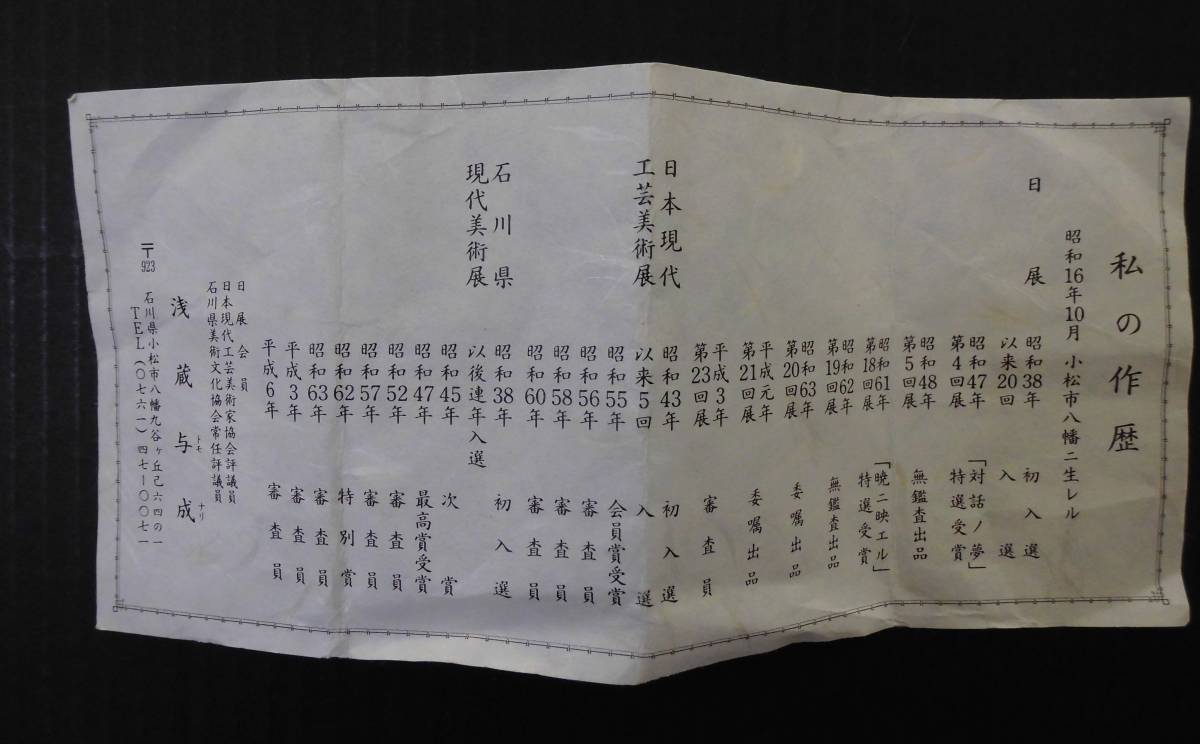 私の作歴
昭和16年10月 小松市八幡ニ生レル
日展
昭和38年 初入選
以来20回 入選
昭和47年
第4回展
「対話ノ夢」
特選受賞
昭和48年
第5回展
無鑑査出品
昭和61年
第18回展
「暁ニ映エル」
特選受賞
昭和62年
第19回展
無鑑査出品
昭和63年
第20回展
委嘱出品
平成元年
第21回展
委嘱出品
平成3年
第23回展
審査員
日本現代
工芸美術展
昭和43年 初入選
以来5回 入選
昭和55年 会員賞受賞
昭和56年 審査員
昭和58年 審査員
昭和60年 審査員
石川県
現代美術展
昭和38年 初入選
以後連年入選
昭和45年 次賞
昭和47年 最高賞受賞
昭和52年 審査員
昭和57年 審査員
昭和62年 特別賞
昭和63年 審査員
平成3年 審査員
平成6年 審査員
日展会員
日本現代工芸美術家協会評議員
石川県美術文化協会常任評議員
浅蔵与成
トモ ナリ
〒923 石川県小松市八幡九谷ヶ丘己六四の一
TEL(〇七六一)四七-〇〇七一